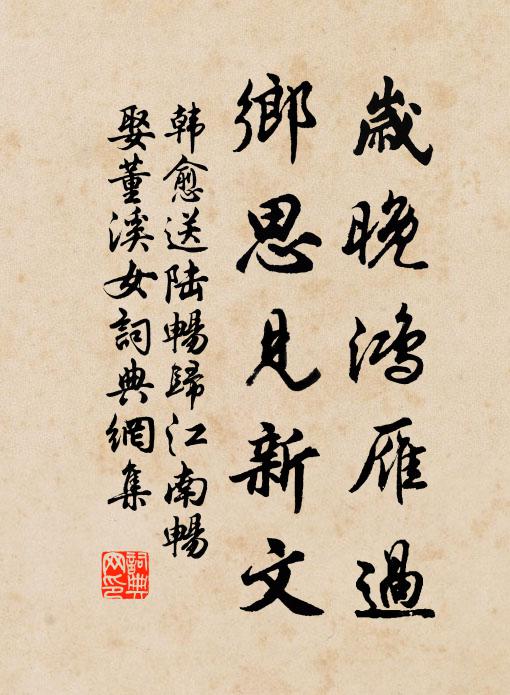 歲晚鴻雁過
鄉思見新文
韩愈送陆暢歸江南暢
娶董溪女詞典網集
詞典网印